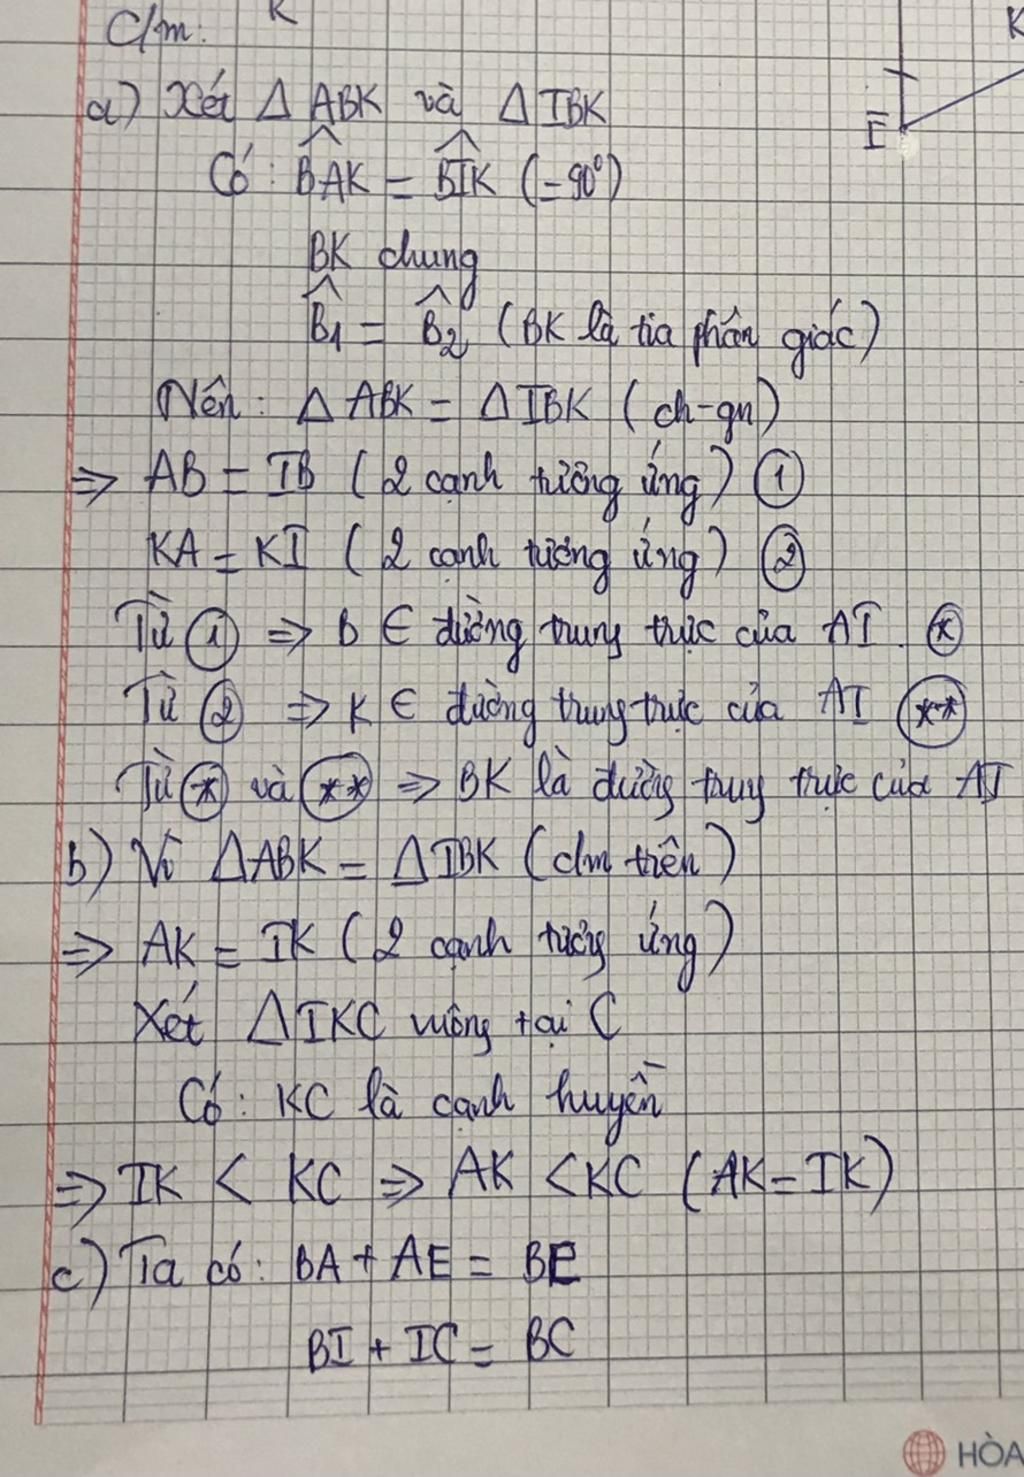 K
C/m:
K
a) Xét Δ ABK và Δ IBK
I
Có: BAK = BIK (=90°)
BK chung
B1 = B2 (BK là tia phân giác)
Nên: Δ ABK = Δ IBK (ch-gn)
⇒ AB = IB (2 cạnh tương ứng) ①
KA = KI (2 cạnh tương ứng) ②
Từ ① ⇒ B ∈ đường trung trực của AI. (*)
Từ ② ⇒ K ∈ đường trung trực của AI (**)
Từ (*) và (**) ⇒ BK là đường trung trực của AI
b) Vì ΔABK = ΔIBK (clm trên)
⇒ AK = IK (2 cạnh tương ứng)
Xét ΔIKC vuông tại C
Có: KC là cạnh huyền
⇒ IK < KC ⇒ AK < KC (AK = IK)
c) Ta có: BA + AE = BE
BI + IC = BC
HÒA